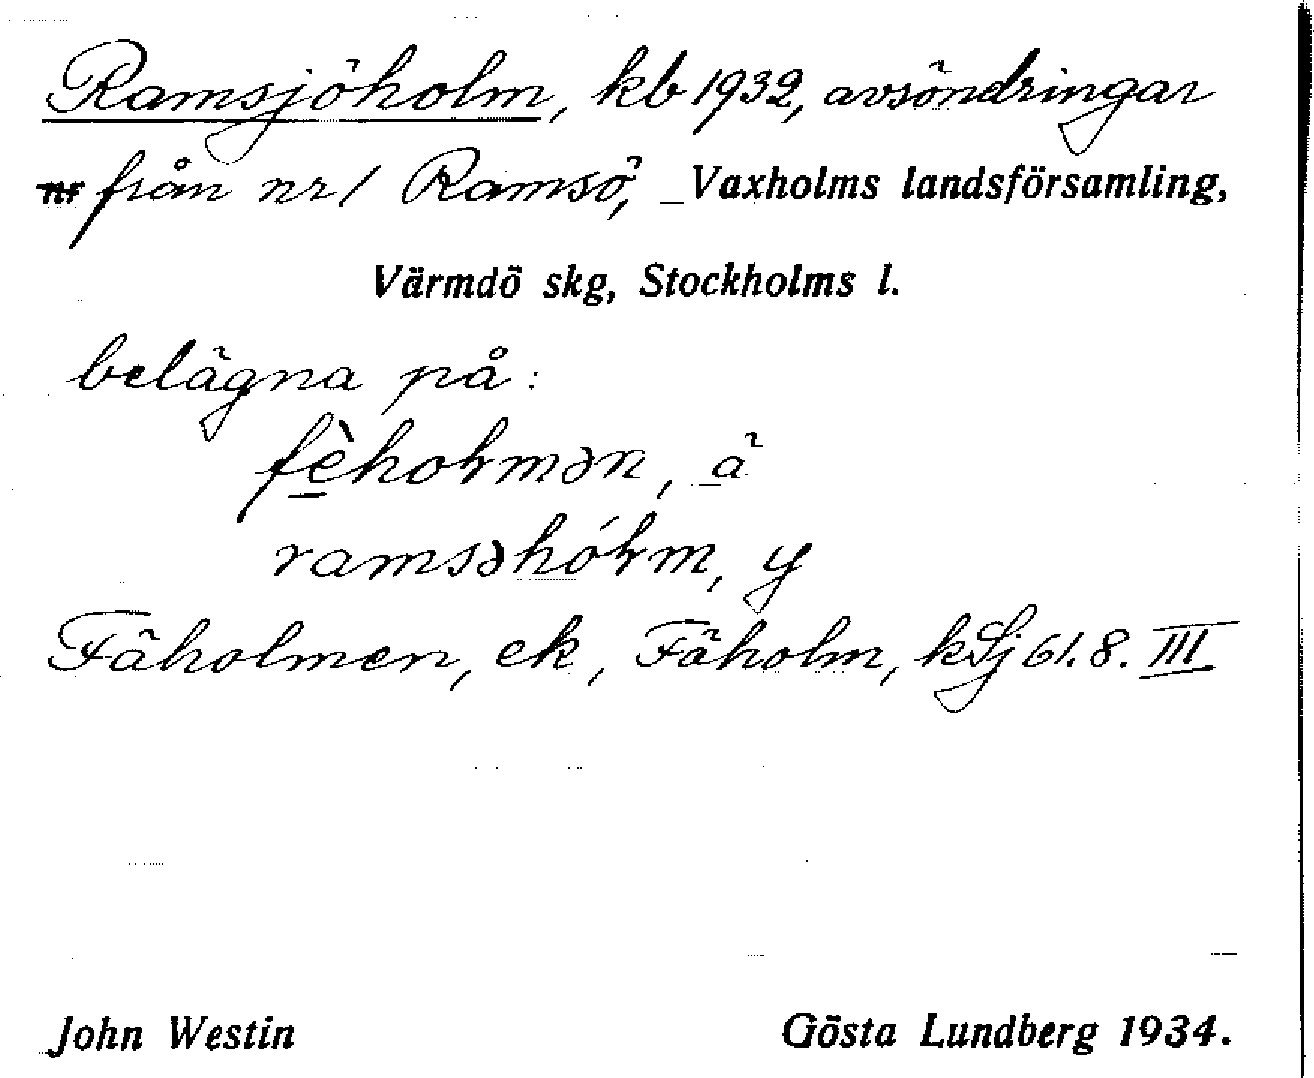 Ramsjöholm, kb 1932, avsöndringar
nr från nr 1 Ramsö, Vaxholms landsförsamling,
Värmdö skg, Stockholms l.
belägna på:
fèhoɫmən, ä
ramsəhóɫm, y
Fäholmen, ek, Fäholm, kSj 61.8. III
John Westin Gösta Lundberg 1934.